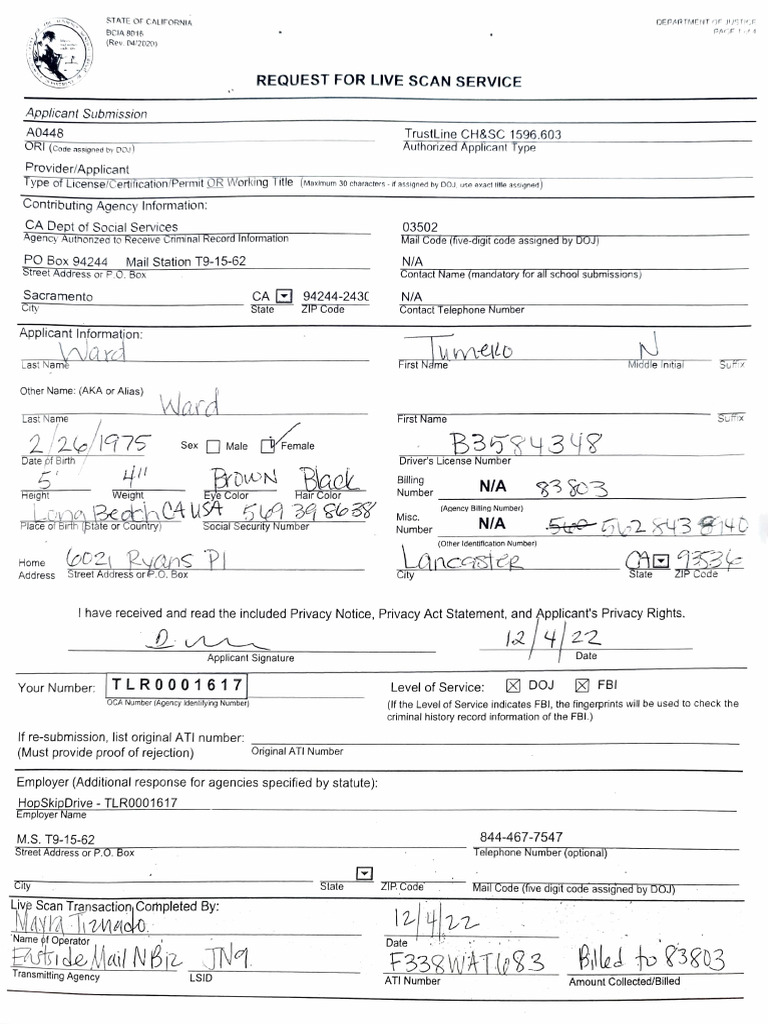 STATE OF CALIFORNIA
BCIA 8016
(Rev. 04/2020)
DEPARTMENT OF JUSTICE
PAGE 1 of 4
REQUEST FOR LIVE SCAN SERVICE
Applicant Submission
A0448 TrustLine CH&SC 1596.603
ORI (Code assigned by DOJ) Authorized Applicant Type
Provider/Applicant
Type of License/Certification/Permit OR Working Title (Maximum 30 characters - if assigned by DOJ, use exact title assigned)
Contributing Agency Information:
CA Dept of Social Services 03502
Agency Authorized to Receive Criminal Record Information Mail Code (five-digit code assigned by DOJ)
PO Box 94244 Mail Station T9-15-62 N/A
Street Address or P.O. Box Contact Name (mandatory for all school submissions)
Sacramento CA 94244-2430 N/A
City State ZIP Code Contact Telephone Number
Applicant Information:
Ward Tumeko N
Last Name First Name Middle Initial Suffix
Other Name: (AKA or Alias)
Ward
Last Name First Name Suffix
2/26/1975 Sex Male Female B3584348
Date of Birth Driver's License Number
5' 4" Brown Black Billing Number N/A 83803
Height Weight Eye Color Hair Color (Agency Billing Number)
Long Beach CA USA 569 39 8638 Misc. Number N/A 562 843 8140
Place of Birth (State or Country) Social Security Number (Other Identification Number)
Home Address 6021 Ryans Pl Lancaster CA 93536
Street Address or P.O. Box City State ZIP Code
I have received and read the included Privacy Notice, Privacy Act Statement, and Applicant's Privacy Rights.
12/4/22
Applicant Signature Date
Your Number: TLR0001617 Level of Service: DOJ FBI
OCA Number (Agency Identifying Number) (If the Level of Service indicates FBI, the fingerprints will be used to check the
criminal history record information of the FBI.)
If re-submission, list original ATI number:
(Must provide proof of rejection) Original ATI Number
Employer (Additional response for agencies specified by statute):
HopSkipDrive - TLR0001617
Employer Name
M.S. T9-15-62 844-467-7547
Street Address or P.O. Box Telephone Number (optional)
City State ZIP Code Mail Code (five digit code assigned by DOJ)
Live Scan Transaction Completed By:
Mayra Tiznado 12/4/22
Name of Operator Date
Eastside Mail N Biz JN9 F338WAT683 Billed to 83803
Transmitting Agency LSID ATI Number Amount Collected/Billed